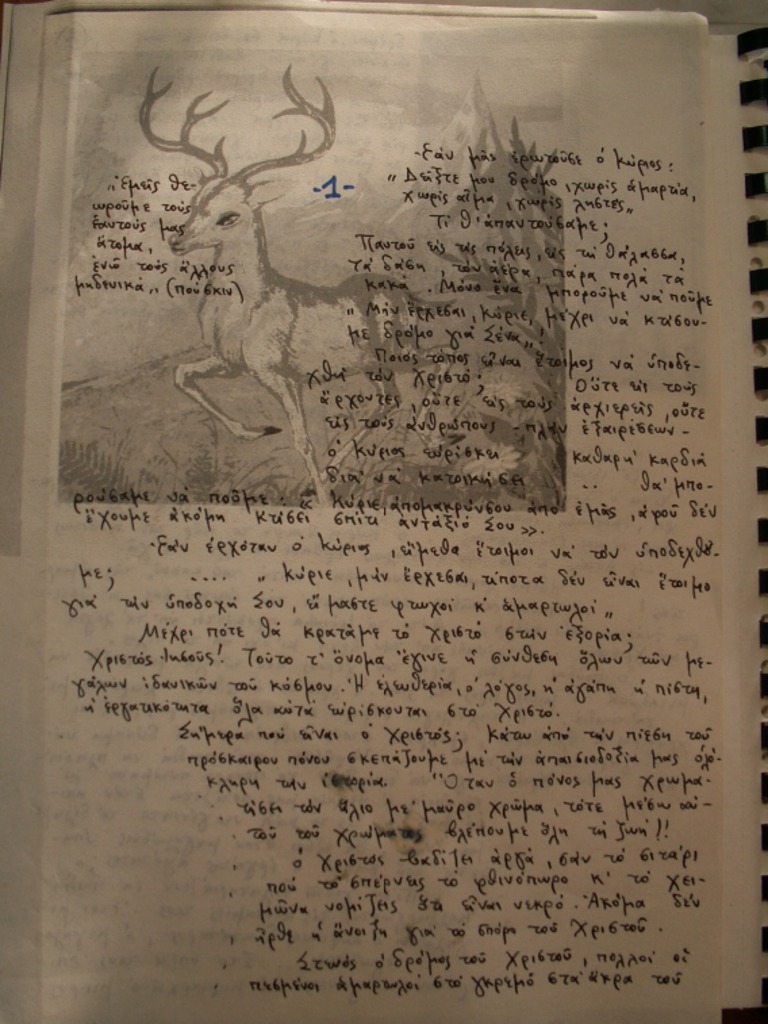 -1-
„Ἐμεῖς θε-
ωροῦμε τούς
ἑαυτούς μας
ἄτομα,
ἐνῶ τούς ἄλλους
μηδενικά„ (Πούσκιν)
-Ἐάν μᾶς ἐρωτοῦσε ὁ Κύριος:
„Δεῖξτε μου δρόμο, χωρίς ἁμαρτία,
χωρίς αἷμα, χωρίς ληστές„
Τί θ' ἀπαντούσαμε;
Παντοῦ εἰς τίς πόλεις, εἰς τή θάλασσα,
τά δάση, τόν ἀέρα, πάρα πολά τά
κακά. Μόνο ἕνα μποροῦμε νά ποῦμε
„Μήν ἔρχεσαι, Κύριε, μέχρι νά κτίσου-
με δρόμο γιά Σένα„!
Ποιός τόπος εἶναι ἕτοιμος νά ὑποδε-
χθῆ τόν Χριστό; Οὔτε εἰς τούς
ἄρχοντες, οὔτε εἰς τούς ἀρχιερεῖς, οὔτε
εἰς τούς ἀνθρώπους - πλήν ἐξαιρέσεων -
ὁ Κύριος εὑρίσκει καθαρή καρδιά
διά νά κατοικήσει .. θά μπο-
ρούσαμε νά ποῦμε: « Κύριε, ἀπομακρύνσου ἀπό ἐμᾶς, ἀφοῦ δέν
ἔχουμε ἀκόμη κτίσει σπίτι ἀντάξιό Σου».
-Ἐάν ἐρχόταν ὁ Κύριος, εἴμεθα ἕτοιμοι νά τόν ὑποδεχθοῦ-
με; .... „Κύριε, μήν ἔρχεσαι, τίποτα δέν εἶναι ἕτοιμο
γιά τήν ὑποδοχή Σου, εἴμαστε φτωχοί κ' ἁμαρτωλοί„
Μέχρι πότε θά κρατᾶμε τό Χριστό στήν ἐξορία;
Χριστός Ἰησοῦς! Τοῦτο τ' ὄνομα ἔγινε ἡ σύνθεση ὅλων τῶν με-
γάλων ἰδανικῶν τοῦ κόσμου. Ἡ ἐλευθερία, ὁ λόγος, ἡ ἀγάπη ἡ πίστη,
ἡ ἐργατικότητα ὅλα αὐτά εὑρίσκονται στό Χριστό.
Σήμερα ποῦ εἶναι ὁ Χριστός; Κάτω ἀπό τήν πίεση τοῦ
πρόσκαιρου πόνου σκεπάζουμε μέ τήν ἀπαισιοδοξία μας ὁλό-
κληρη τήν ἱστορία. Ὅταν ὁ πόνος μας χρωμα-
τίσει τόν ἥλιο μέ μαῦρο χρῶμα, τότε μέσω αὐ-
τοῦ τοῦ χρώματος βλέπουμε ὅλη τή ζωή!!
Ὁ Χριστός βαδίζει ἀργά, σάν τό σιτάρι
πού τό σπέρνεις τό φθινόπωρο κ' τό χει-
μῶνα νομίζεις ὅτι εἶναι νεκρό. Ἀκόμα δέν
ἦρθε ἡ ἄνοιξη γιά τό σπόρι τοῦ Χριστοῦ.
Στενός ὁ δρόμος τοῦ Χριστοῦ, πολλοί οἱ
πεσμένοι ἁμαρτωλοί στό γκρεμό στά ἄκρα τοῦ